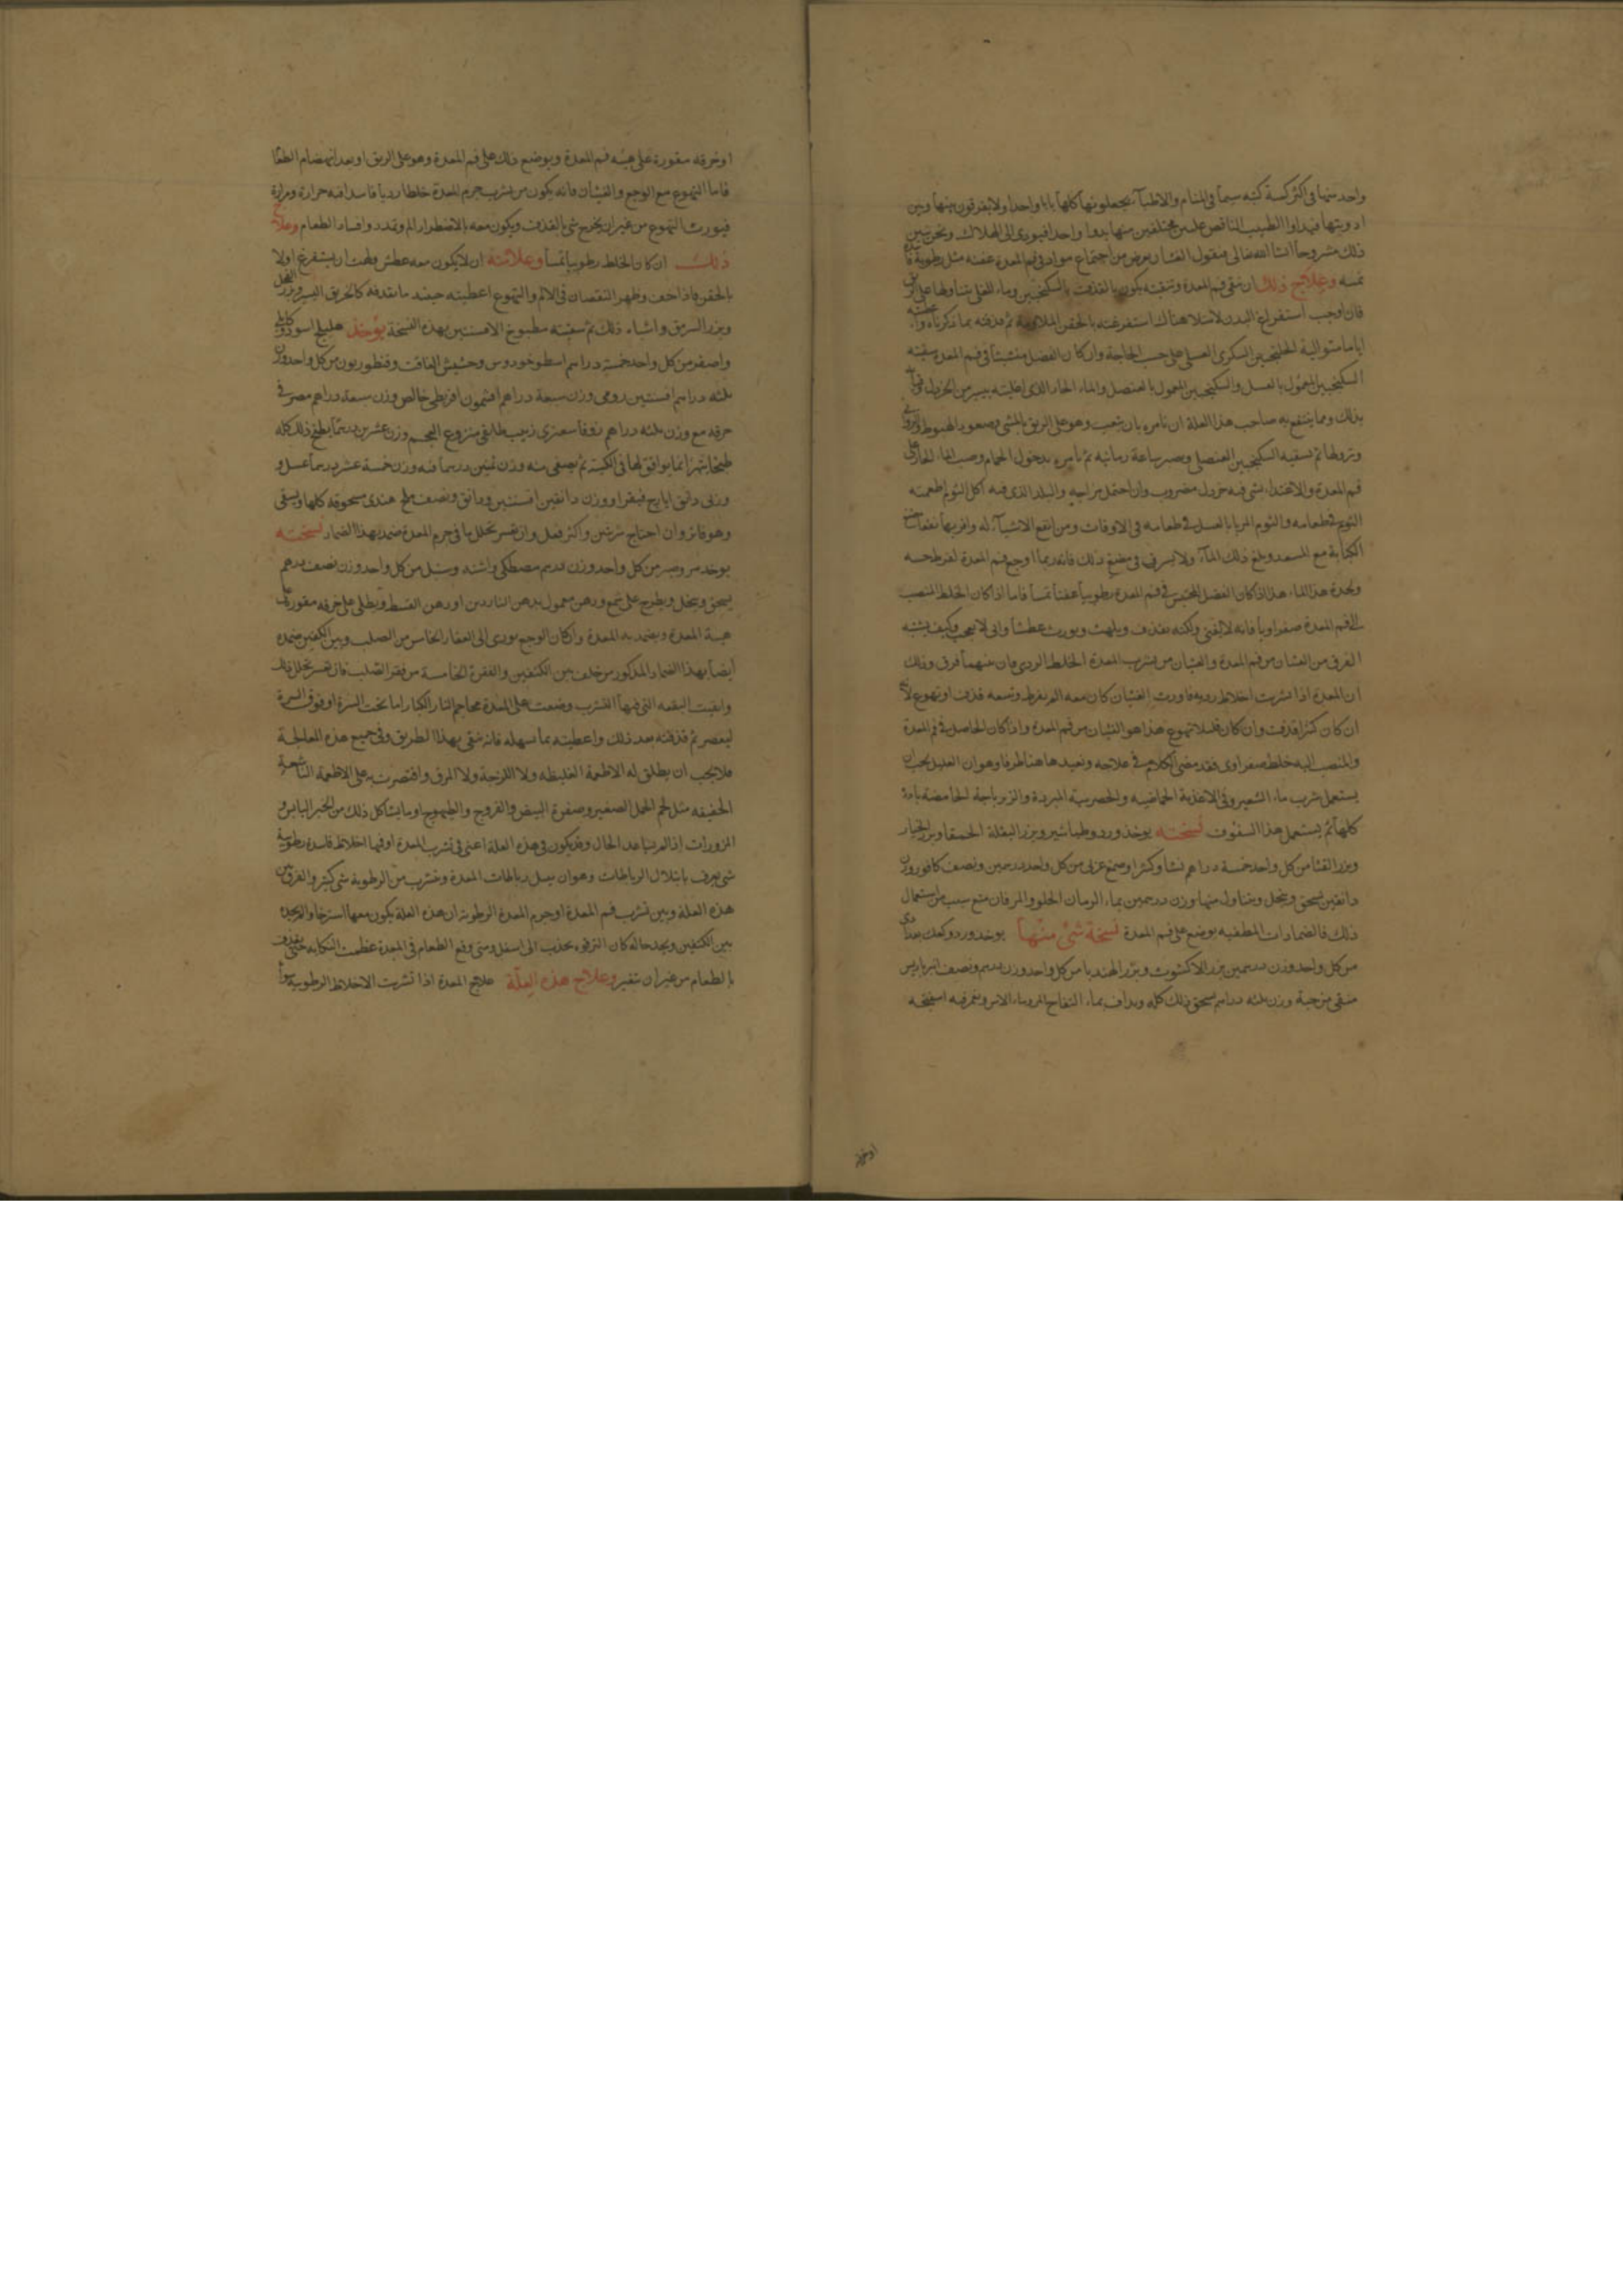 واحد منها فى اكثر كسة كتبه سيما فى المنام والاطبآ يجعلونها كلها بابا واحدا ولا يفرقون بينها وبين
ادويتها فيداوا الطبيب الناقص علتين مختلفتين منها بدوا واحد افيودى الى الهلاك ونحن نبين
ذلك مشروحا انشا الله تعالى فنقول الغثيان يعرض من اجتماع مواد فى فم المعدة عفنه مثل رطوبة
وعلاج ذلك ان تنقى فم المعدة وتنقيته يكون بالقذف بالسكنجبين وماء الفجل يتناولها على الريق
فان اوجب استفراغ البدن لامتلا هناك استفرغته بالحقن الملايمة ثم قذفته بما ذكرناه
اياما متوالية الجلنجبين السكرى العسلى على حسب الحاجة وان كان الفضل متشبثا فى فم المعدة سقيته
السكنجبين المعمول بالعسل والسكنجبين المعمول بالعنصل والماء الحار الذى اغليت به يسير من الخردل
بذلك ومما ينتفع به صاحب هذا العلة ان تامره بان يتعب وهو على الريق بالمشى وصعود الهبوط
ونزولها ثم تسقيه السكنجبين العنصلى ويصبر ساعة زمانيه ثم تامره بدخول الحمام وصب الماء الحار على
فم المعدة والاغتذاء بشى فيه خردل مضروب وان احتمل مزاجه والبلد الذى فيه اكل الثوم اطعمته
الثوم فى طعامه والثوم المربا بالعسل فى طعامه فى الاوقات ومن انفع الاشيآ له واقربها نفعا مضغ
الكبابة مع السعد وبلع ذلك المآء ولا يسرف فى مضغ ذلك فانه ربما اوجع فم المعدة لفرط حسه
ولحدة هذا الماء هذا اذا كان الفضل المحتبس فى فم المعدة رطوبيا عفنا تمسا فاما اذا كان الخلط المنصب
الى فم المعدة صفراويا فانه لا يغثى ولكنه يقذف ويلهث ويورث عطشا
الفرق من الغثيان من فم المعدة والغثيان من تشرب المعدة الخلط الردى فان بينهما فرق وذلك
ان المعدة اذا تشربت اخلاط رديه فاورث الغثيان كان معه الم مفرط وتبعه قذف او تهوع
ان كان كثيرا قذفت وان كان قليلا تهوع هذا هو الغثيان من فم المعدة واذا كان الحاصل فى فم المعدة
والمنصب اليه خلط صفراوى فقد مضى الكلام فى علاجه ونعيد ها هنا طرفا وهو ان العليل يجب ان
يستعمل شرب ماء الشعير وفى الاغذية الحماضيه والحصرمية المبردة والزيرباجة الحامضة باردة
كلها ثم يستعمل هذا السفوف نسخته يوخذ ورد وطباشير وبزر البقلة الحمقا وبزر الخيار
وبزر القثا من كل واحد خمسة دراهم نشا وكثيرا وصمغ عربى من كل واحد درهمين ونصف كافور وزن
دانقين يسحق وينخل ويتناول منها وزن درهمين بماء الرمان الحلو والمر فان منع سبب من استعمال
ذلك فالضمادات المطفيه يوضع على فم المعدة نسخة شئ منها يوخذ ورد وكعك
من كل واحد وزن درهمين بزر الاكشوث وبزر الهندبا من كل واحد وزن درهم ونصف انبرباريس
منقى من حبه وزن ثلثه دراهم يسحق ذلك كله ويداف بماء التفاح المز وماء الاس وتغمر فيه اسفنجه
او خرقه
او خرقه مقورة على هيئه فم المعدة ويوضع ذلك على فم المعدة وهو على الريق او بعد انهضام الطعا
فاما التهوع مع الوجع والغثيان فانه يكون من تشرب جرم المعدة خلطا رديا فاسدا فيه حرارة ومرارة
فيورث التهوع من غير ان يخرج شى بالقذف ويكون معه بالاضطرار الم وتمدد وافساد الطعام وعلاج
ذلك ان كان الخلط رطوبيا تمسا وعلامته ان لا يكون معه عطش ان يستفرغ اولا
بالحقن فاذا خف وظهر النقصان فى الالم والتهوع اعطيته حينئذ ما يقذفه كالخربق اليسير وبزر الفجل
وبزر السرمق واشباه ذلك ثم سقيته مطبوخ الافسنتين بهذه النسخة يوخذ هليلج اسود كابلى
واصفر من كل واحد خمسة دراهم اسطوخودوس وحشيش الغافت وقنطوريون من كل واحد وزن
ثلثه دراهم افسنتين رومى وزن سبعة دراهم افتيمون اقريطى خالص وزن سبعة دراهم مصر فى
خرقه مع وزن ثلثه دراهم زوفا سعترى زبيب طايفى منزوع العجم وزن عشرين درهما يطبخ ذلك كله
طبخا ثم يصفى منه وزن ثمنين درهما فيه وزن خمسة عشر درهما عسل و
وزنى دانق ايارج فيقرا ووزن دانقين افسنتين ودانق ونصف ملح هندى مسحوقه كلها ويسقى
وهو فاتر وان احتاج مرتين واكثر فعل وان عسر تحلل ما فى جرم المعدة ضمد بهذا الضماد نسخته
يوخذ مر وصبر من كل واحد وزن درهم مصطكى واشنه وسنبل من كل واحد وزن نصف درهم
يسحق وينخل ويطرح على شمع ودهن معمول بدهن الناردين او دهن القسط ويطلى على خرقه مقورة على
هيئة المعدة ويضمد به المعدة وان كان الوجع يورى الى الفقار الخامس من الصلب وبين الكتفين ضمده
ايضا بهذا الضماد المذكور من خلف بين الكتفين والفقرة الخامسة من فقر الصلب فان عسر تحلل ذلك
وبقيت البقعه التى فيها التشرب وضعت على المعدة محاجم النار الكبار اما تحت السرة او فوق السرة
ليعصر ثم قذفته بعد ذلك واعطيته بما تسهله فانه ينقى بهذا الطريق وفى جميع هذه المعالجة
فلا يجب ان يطلق له الاطعمة الغليظه ولا اللزجة ولا المرق واقتصرت به على الاطعمة الناشفة
الخفيفه مثل لحم الحمل الصغير وصفرة البيض والفروج والطيهوج او ما يشاكل ذلك من الخبز اليابس و
المزورات اذا لم يساعد الحال وقد يكون فى هذه العلة اعنى فى تشرب المعدة او فيها اخلاط فاسدة رطوبية
شى يعرف بابتلال الرباطات وهو ان يبتل رباطات المعدة وتتشرب من الرطوبة شى كثير والفرق بين
هذه العلة وبين تشرب فم المعدة او جرم المعدة الرطوبة ان هذه العلة يكون معها استرخا والم يجده
بين الكتفين ويجد حاله كان الترقوه يجذب الى اسفل ومتى وقع الطعام فى المعدة عظمت النكايه حتى يقذف
بالطعام من غير ان يتغير وعلاج هذه العلة علاج المعدة اذا تشربت الاخلاط الرطوبيه سوأ